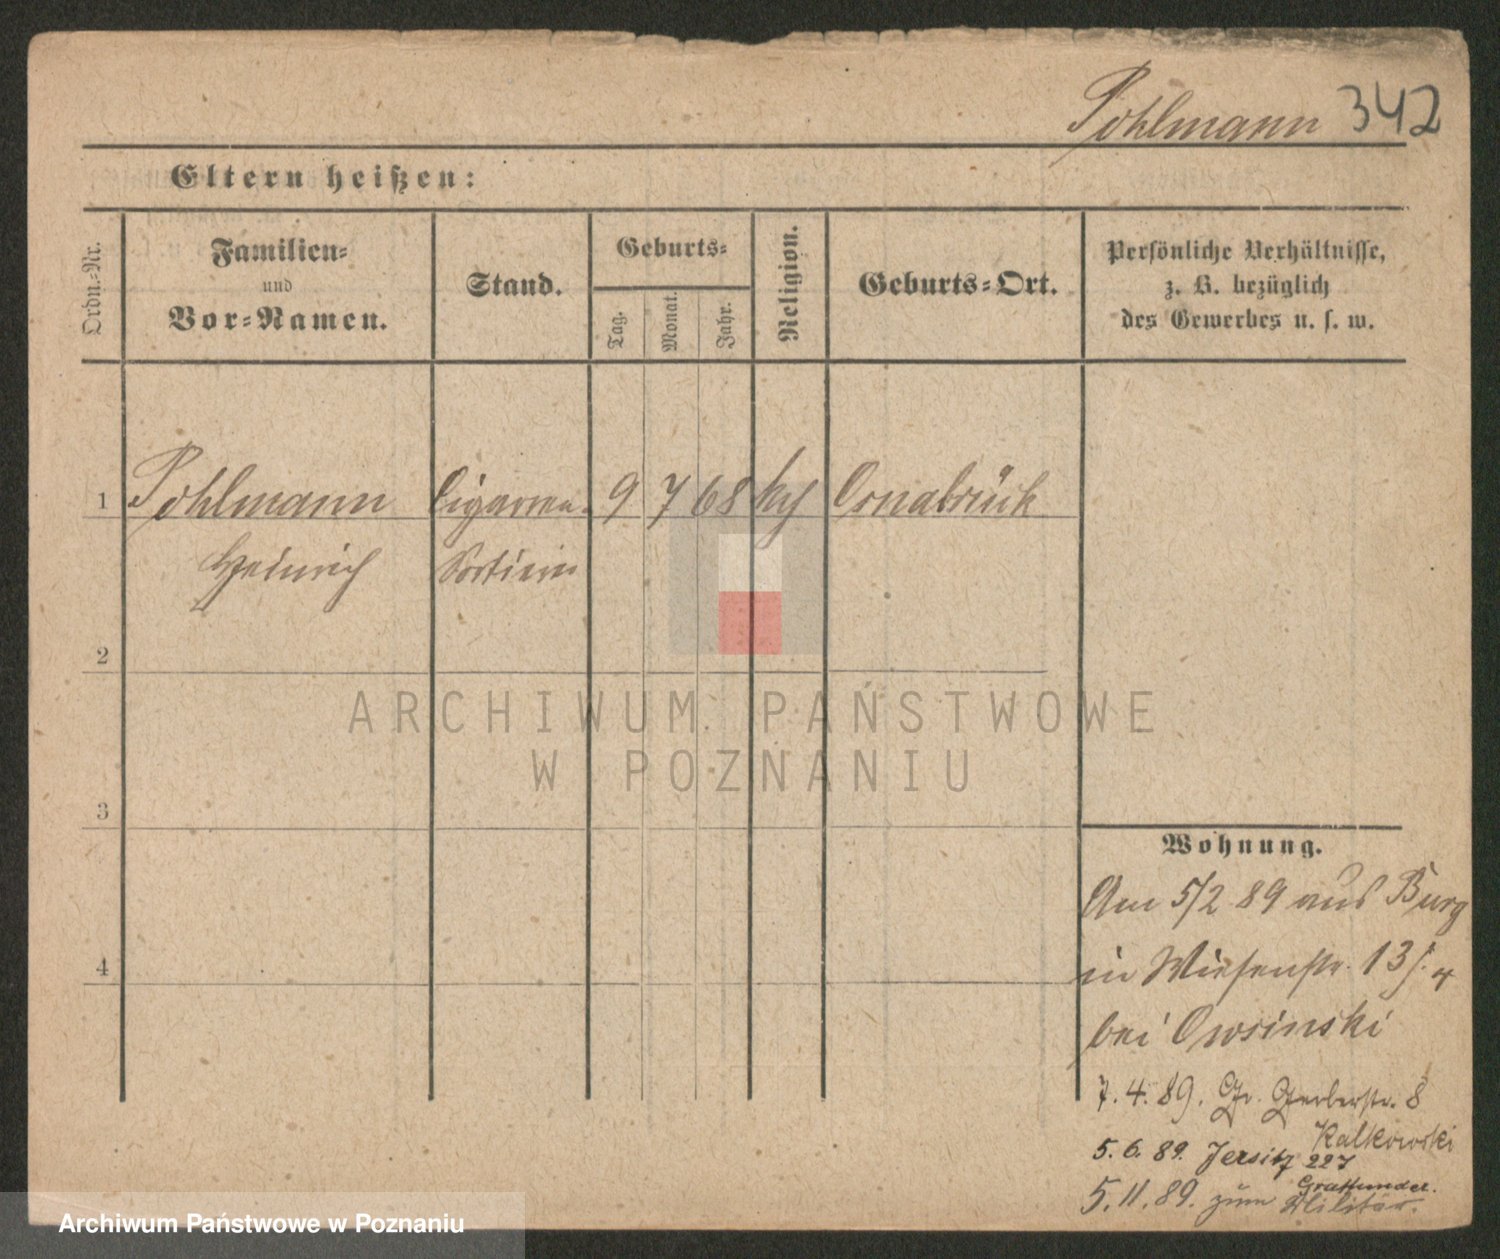 Pohlmann 342
Eltern heißen:
Ordn.-Nr.
Familien-
und
Vor-Namen.
Stand.
Geburts-
Tag.
Monat.
Jahr.
Religion.
Geburts-Ort.
Persönliche Verhältnisse,
z. B. bezüglich
des Gewerbes u. s. w.
1 Pohlmann Cigarren- 9 7 68 Osnabrück
Heinrich Sortirer
2
3
4
Wohnung.
Am 5/2 89 aus Burg
in Wiesenstr. 13
bei Owsinski
7. 4. 89. Gr. Gerberstr. 8
Kalkowski
5. 6. 89. Jersitz 227
Grattunder.
5. 11. 89. zum Militär.
ARCHIWUM PAŃSTWOWE
W POZNANIU
Archiwum Państwowe w Poznaniu